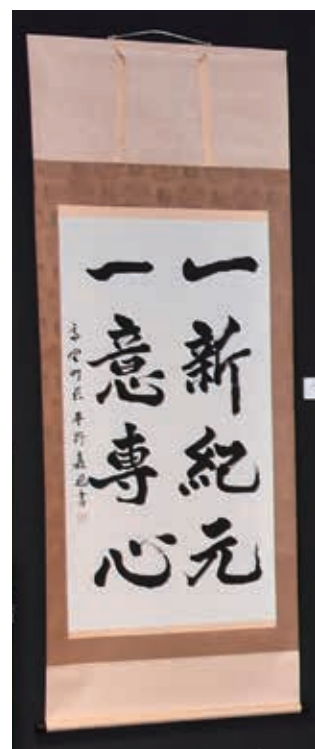 一新紀元
一意専心